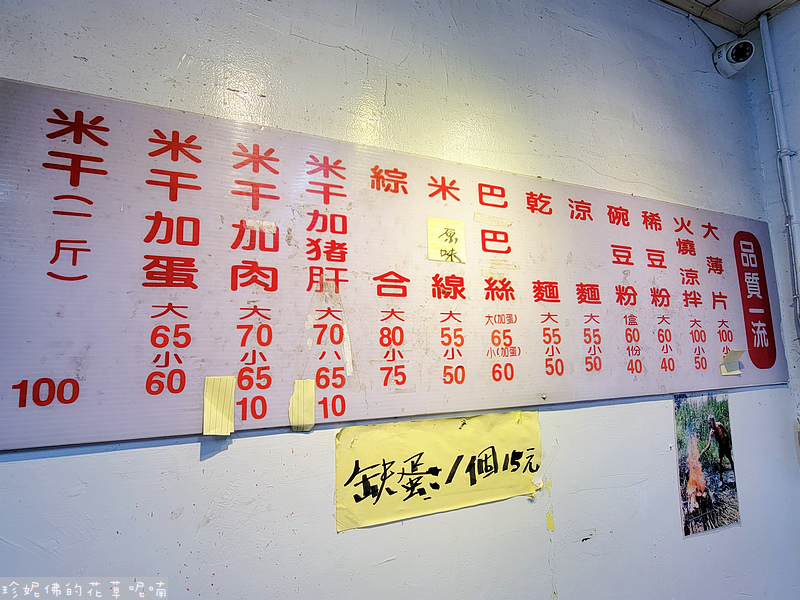 品質一流
大薄片 大100 小
火燒涼拌 大100 小50
稀豆粉 大60 小40
碗豆粉 盒60 份40
涼麵 大55 小50
乾麵 大55 小50
巴巴絲 大(加蛋)65 小(加蛋)60
米線 大55 小50
原味
綜合 大80 小75
米干加豬肝 大70 小65 10
米干加肉 大70 小65 10
米干加蛋 大65 小60
米干(一斤) 100
缺蛋 1個15元
珍妮佛的花草呢喃